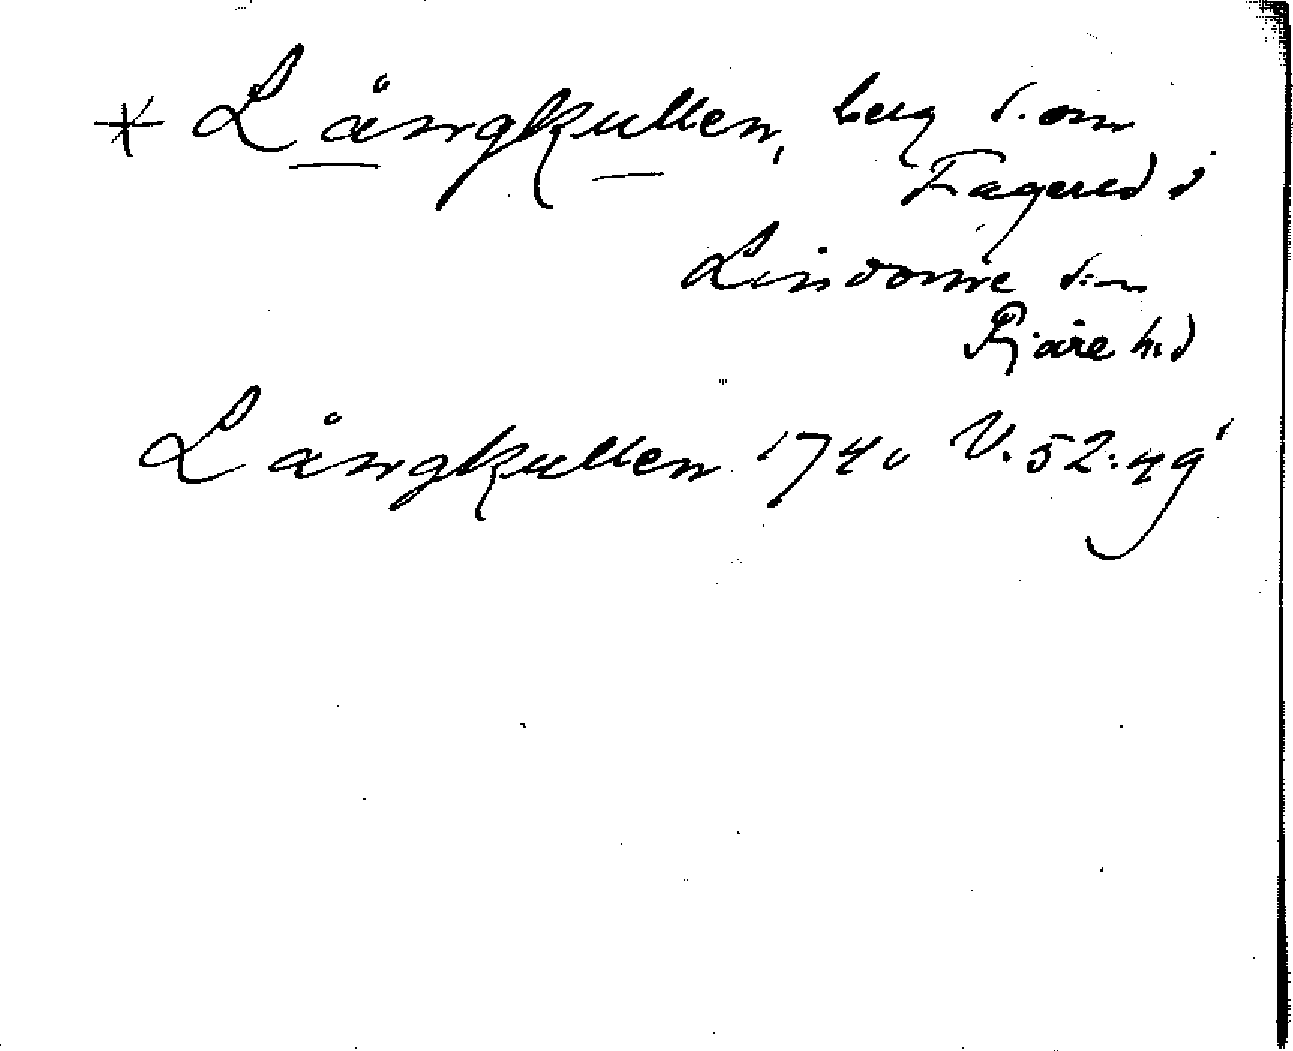 * Långkullen, berg s. om
Fagered i
Lindome sn
Fjäre hd
Långkullen 1740 V. 52:49